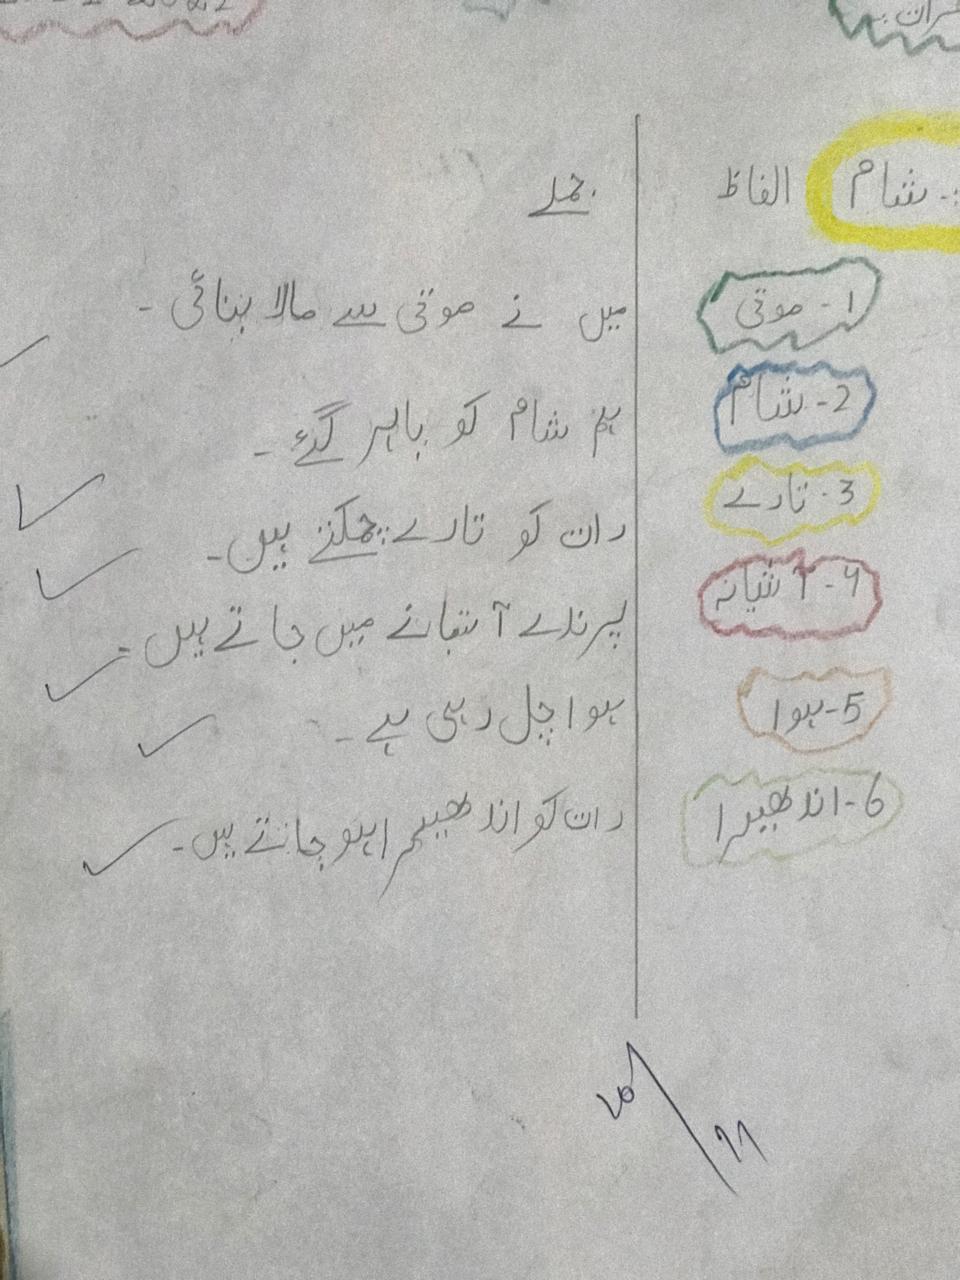 شام الفاظ جملے
1- موتی میں نے موتی سے مالا بنائی -
2- شام ہم شام کو باہر گئے -
3- تارے رات کو تارے چمکتے ہیں -
4- آشیانہ پرندے آشیانے میں جاتے ہیں -
5- ہوا ہوا چل رہی ہے -
6- اندھیرا رات کو اندھیرا ہو جاتے ہیں -